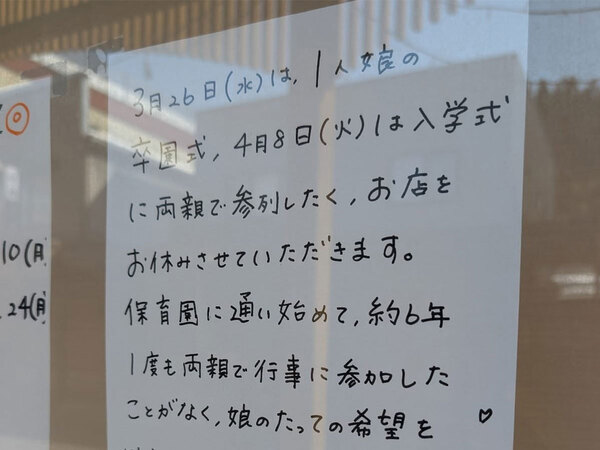 3月26日(水)は、1人娘の
卒園式、4月8日(火)は入学式
に両親で参列したく、お店を
お休みさせていただきます。
保育園に通い始めて、約6年
1度も両親で行事に参加した
ことがなく、娘のたっての希望を
♡
10(月
24(月